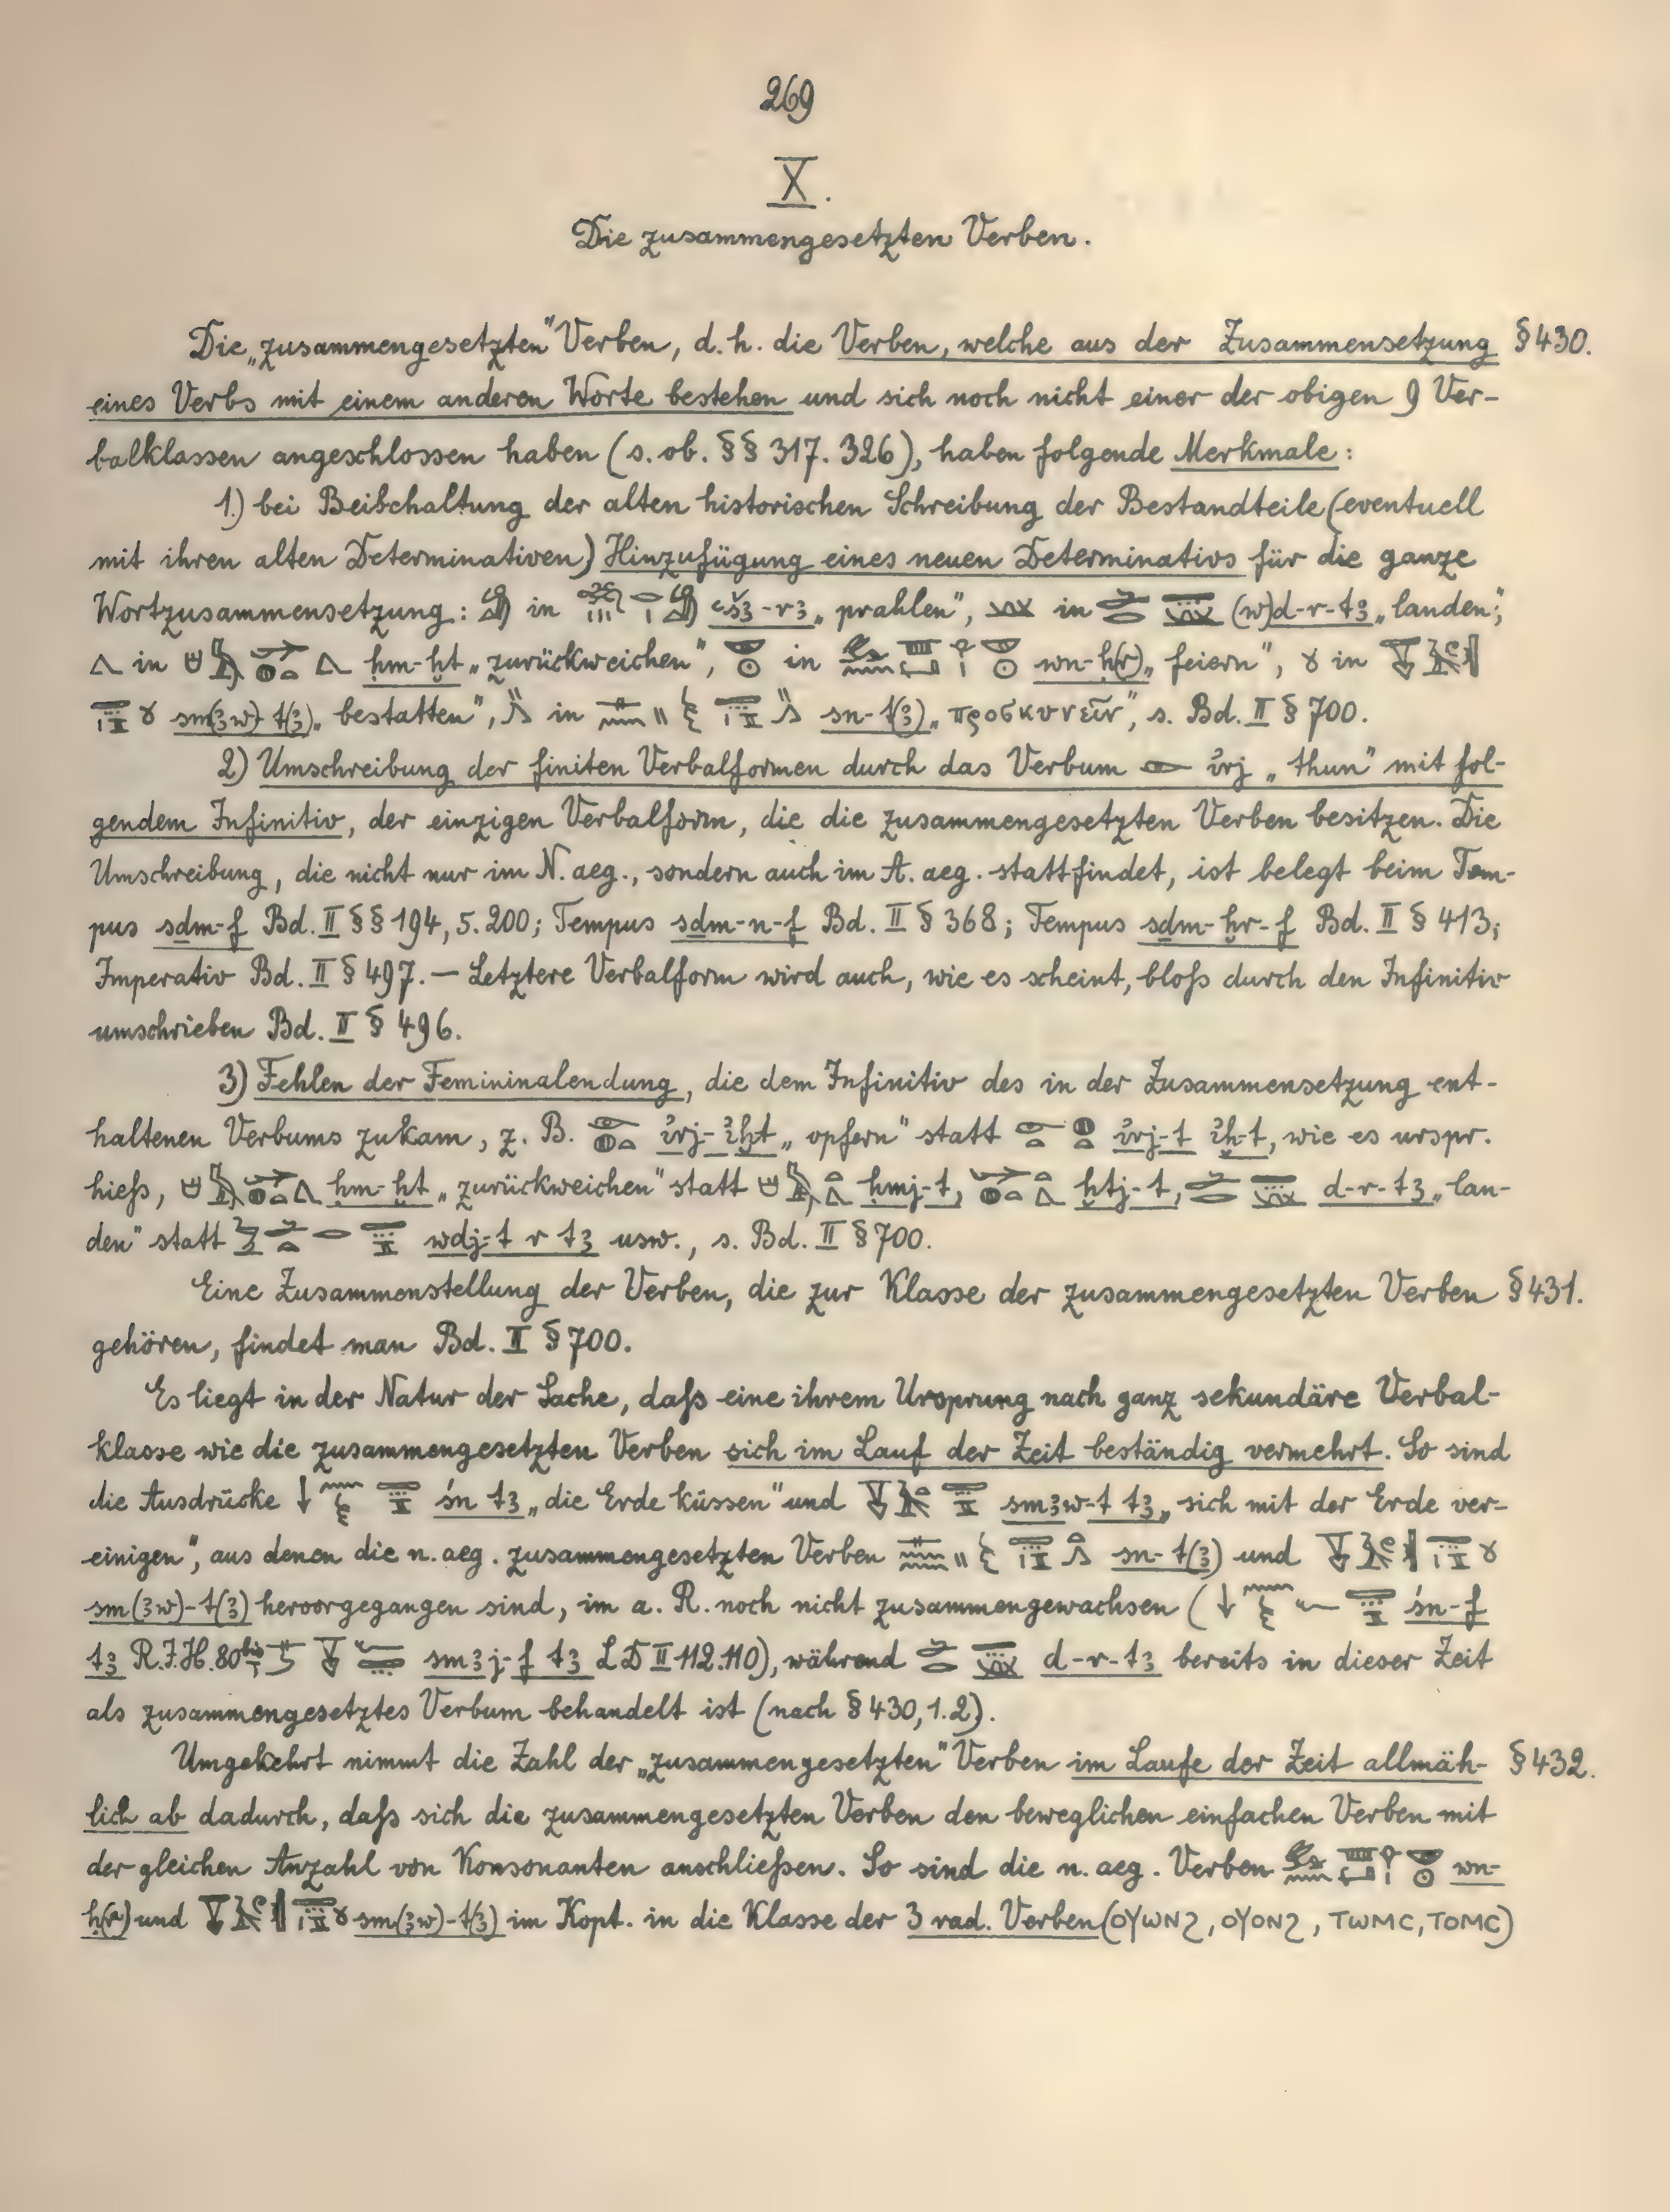 269
X.
Die zusammengesetzten Verben.
Die „zusammengesetzten" Verben, d. h. die Verben, welche aus der Zusammensetzung § 430.
eines Verbs mit einem anderen Worte bestehen und sich noch nicht einer der obigen 9 Ver-
balklassen angeschlossen haben (s. ob. §§ 317. 326), haben folgende Merkmale:
1.) bei Beibehaltung der alten historischen Schreibung der Bestandteile (eventuell
mit ihren alten Determinativen) Hinzufügung eines neuen Determinativs für die ganze
Wortzusammensetzung: in ꜥšꜣ-rꜣ „prahlen", in (w)d-r-tꜣ „landen",
in ḥm-ḫt „zurückweichen", in wn-ḥ(r) „feiern", in
sm(ꜣw)-t(ꜣ) „bestatten", in sn-t(ꜣ) „προσκυνεῖν", s. Bd. II § 700.
2) Umschreibung der finiten Verbalformen durch das Verbum ı͗rj „thun" mit fol-
gendem Infinitiv, der einzigen Verbalform, die die zusammengesetzten Verben besitzen. Die
Umschreibung, die nicht nur im N. aeg., sondern auch im A. aeg. stattfindet, ist belegt beim Tem-
pus sḏm-f Bd. II §§ 194, 5. 200; Tempus sḏm-n-f Bd. II § 368; Tempus sḏm-ḫr-f Bd. II § 413;
Imperativ Bd. II § 497. — Letztere Verbalform wird auch, wie es scheint, bloß durch den Infinitiv
umschrieben Bd. II § 496.
3) Fehlen der Femininalendung, die dem Infinitiv des in der Zusammensetzung ent-
haltenen Verbums zukam, z. B. ı͗rj-ı͗ḫt „opfern" statt ı͗rj-t ı͗ḫ-t, wie es urspr.
hieß, ḥm-ḫt „zurückweichen" statt ḥmj-t, ḫtj-t, d-r-tꜣ „lan-
den" statt wdj-t r tꜣ usw., s. Bd. II § 700.
Eine Zusammenstellung der Verben, die zur Klasse der zusammengesetzten Verben § 431.
gehören, findet man Bd. II § 700.
Es liegt in der Natur der Sache, daß eine ihrem Ursprung nach ganz sekundäre Verbal-
klasse wie die zusammengesetzten Verben sich im Lauf der Zeit beständig vermehrt. So sind
die Ausdrücke śn tꜣ „die Erde küssen" und smꜣw-t tꜣ „sich mit der Erde ver-
einigen", aus denen die n. aeg. zusammengesetzten Verben sn-t(ꜣ) und
sm(ꜣw)-t(ꜣ) hervorgegangen sind, im a. R. noch nicht zusammengewachsen ( śn-f
tꜣ R.J.H. 80 bis smꜣj-f tꜣ LD II 112. 110), während d-r-tꜣ bereits in dieser Zeit
als zusammengesetztes Verbum behandelt ist (nach § 430, 1. 2).
Umgekehrt nimmt die Zahl der „zusammengesetzten" Verben im Laufe der Zeit allmäh- § 432.
lich ab dadurch, daß sich die zusammengesetzten Verben den beweglichen einfachen Verben mit
der gleichen Anzahl von Konsonanten anschließen. So sind die n. aeg. Verben wn-
ḥ(r) und sm(ꜣw)-t(ꜣ) im Kopt. in die Klasse der 3 rad. Verben (ⲟⲩⲱⲛϩ, ⲟⲩⲟⲛϩ, ⲧⲱⲙⲥ, ⲧⲟⲙⲥ)